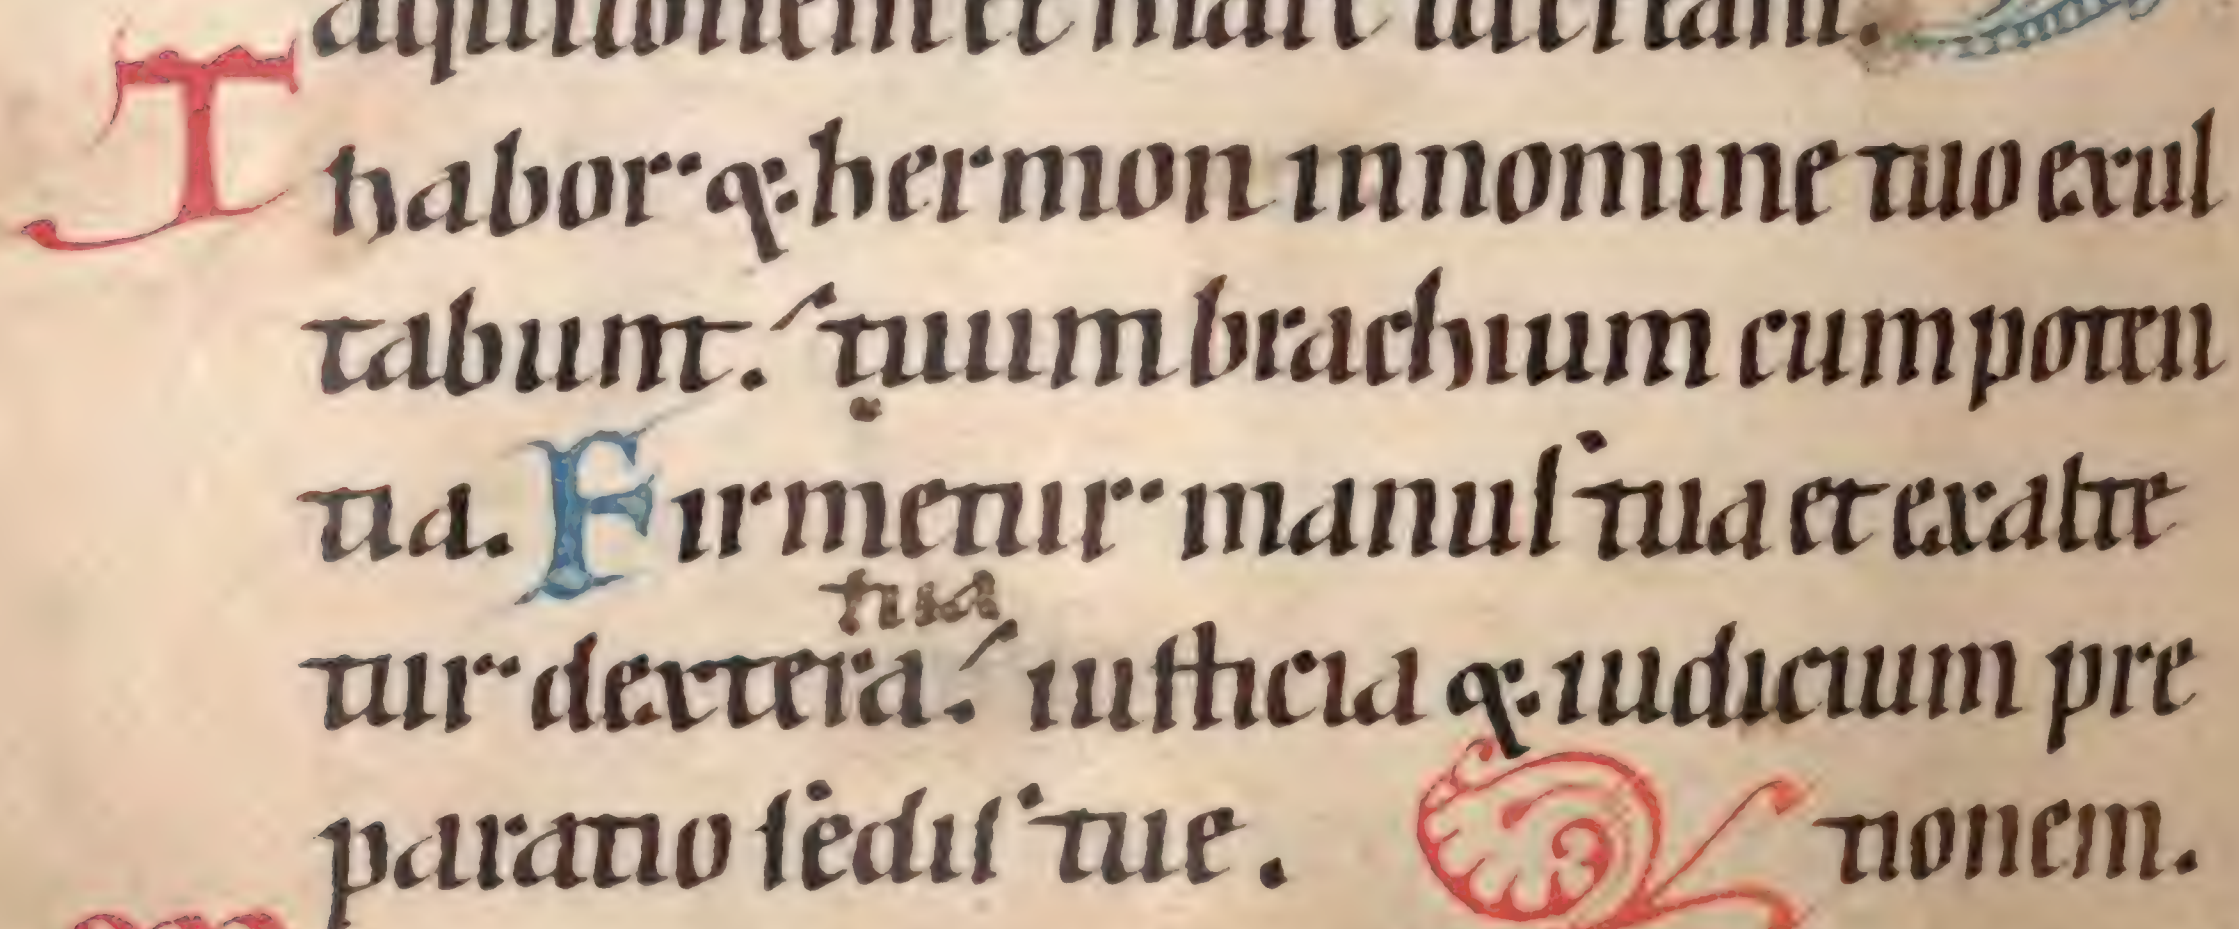 aquilonem et mare tu creasti.
Thabor q; hermon in nomine tuo exul
tabunt. tuum brachium cum poten
tia. Firmetur manus tua et exalte
tua
tur dextera. iusticia q; iudicium pre
paratio sedis tue. tionem.